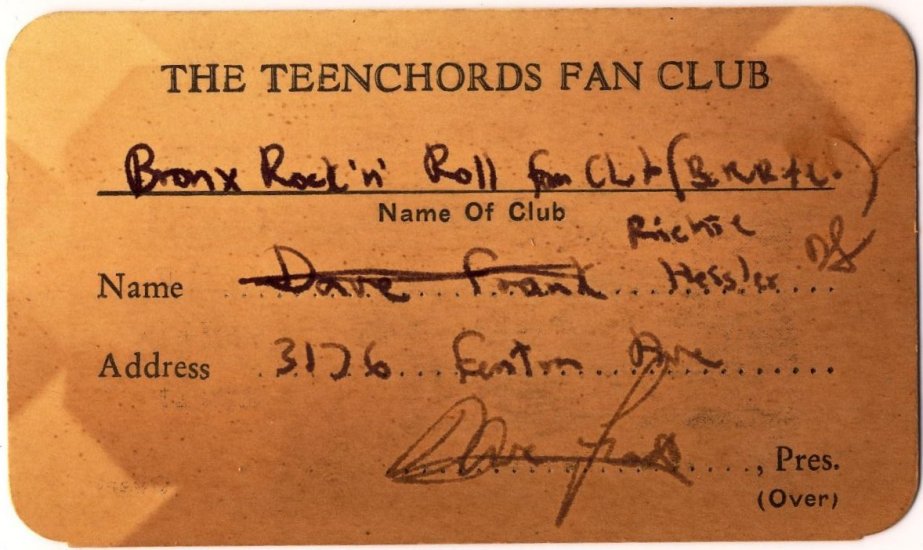 THE TEENCHORDS FAN CLUB
Bronx Rock 'n' Roll Fan Club (B.R.R.F.C.)
Name Of Club
Richie
Name Dave Frank Hessler DF
Address 3176 Fenton Ave
Dave Frank, Pres.
(Over)